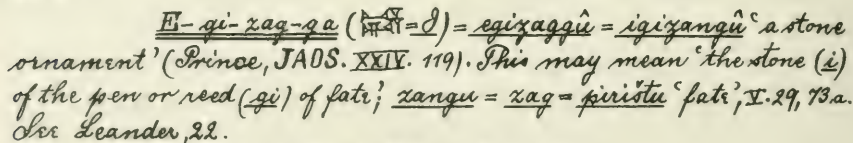 E-gi-zag-ga (=I) = egizaggû = igizangû ‘a stone
ornament’ (Prince, JAOS. XXIV. 119). This may mean ‘the stone (i)
of the pen or reed (gi) of fate’; zangu = zag = pirištu ‘fate’, V. 29, 73.a.
See Leander, 22.